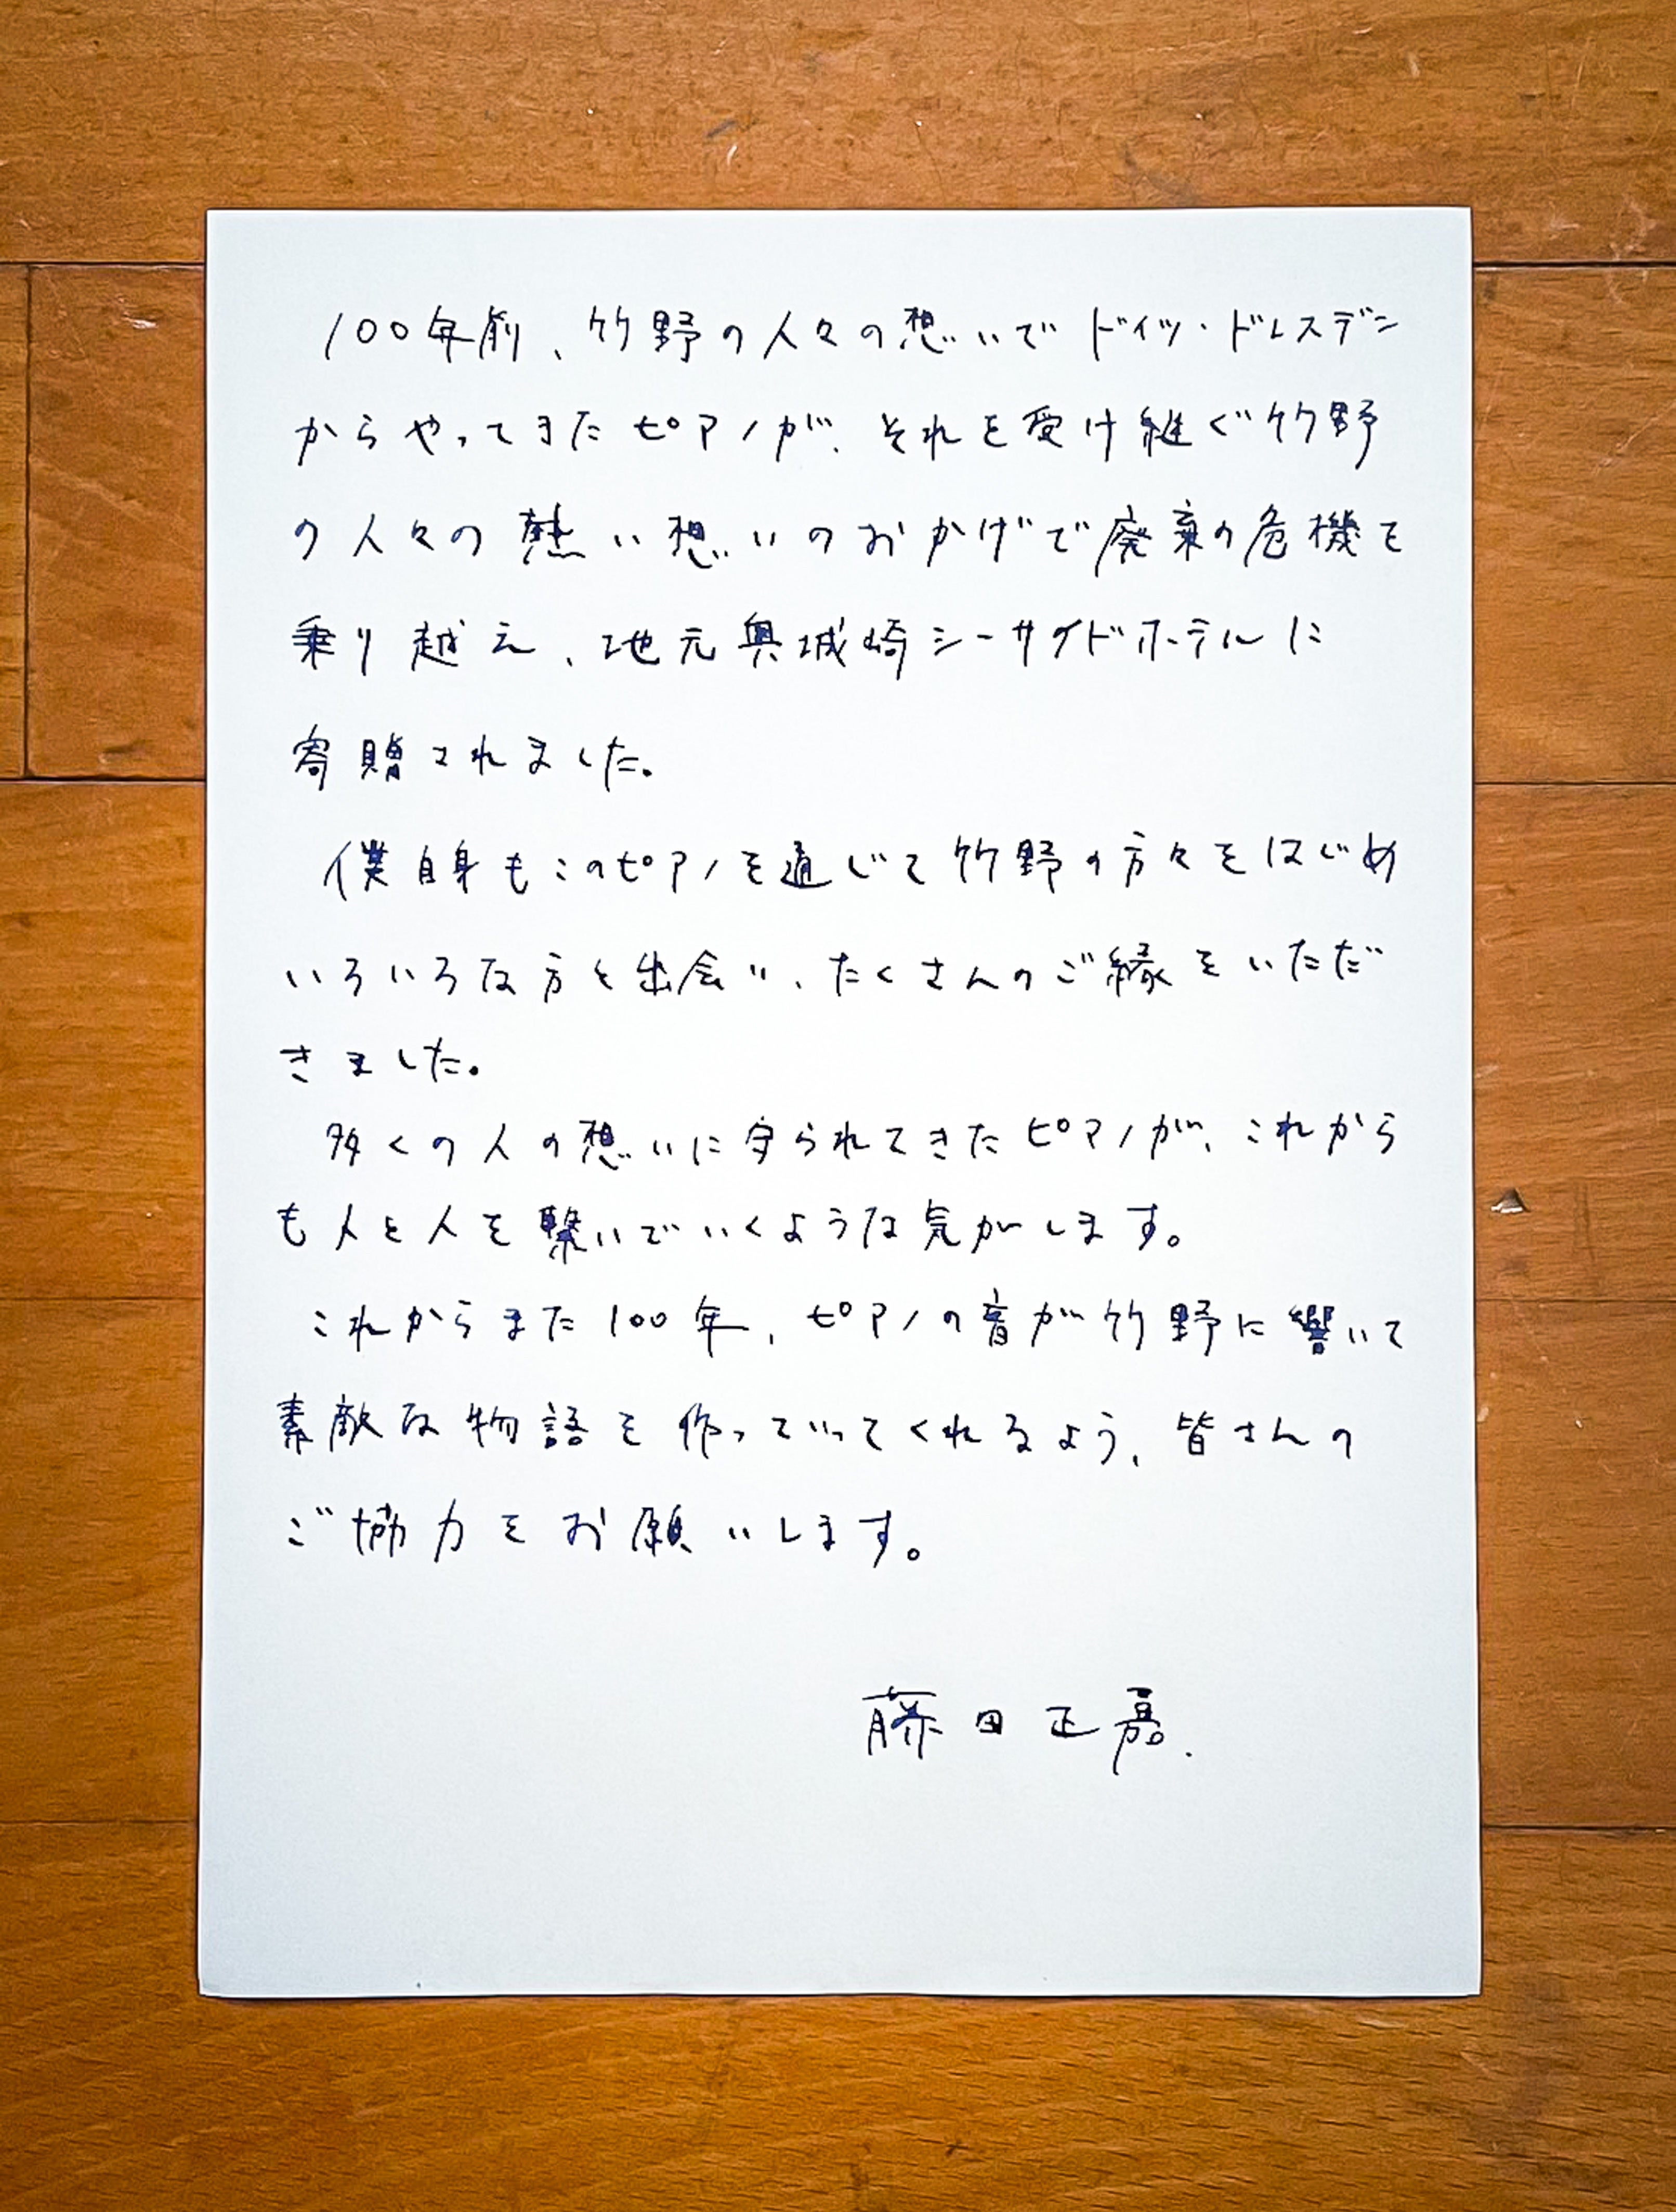 100年前、竹野の人々の想いでドイツ・ドレスデン
からやってきたピアノが、それを受け継ぐ竹野
の人々の熱い想いのおかげで廃棄の危機を
乗り越え、地元奥城崎シーサイドホテルに
寄贈されました。
僕自身もこのピアノを通じて竹野の方々をはじめ
いろいろな方と出会い、たくさんのご縁をいただ
きました。
多くの人の想いに守られてきたピアノが、これから
も人と人を繋いでいくような気がします。
これからまた100年、ピアノの音が竹野に響いて
素敵な物語を作っていってくれるよう、皆さんの
ご協力をお願いします。
藤田正嘉.